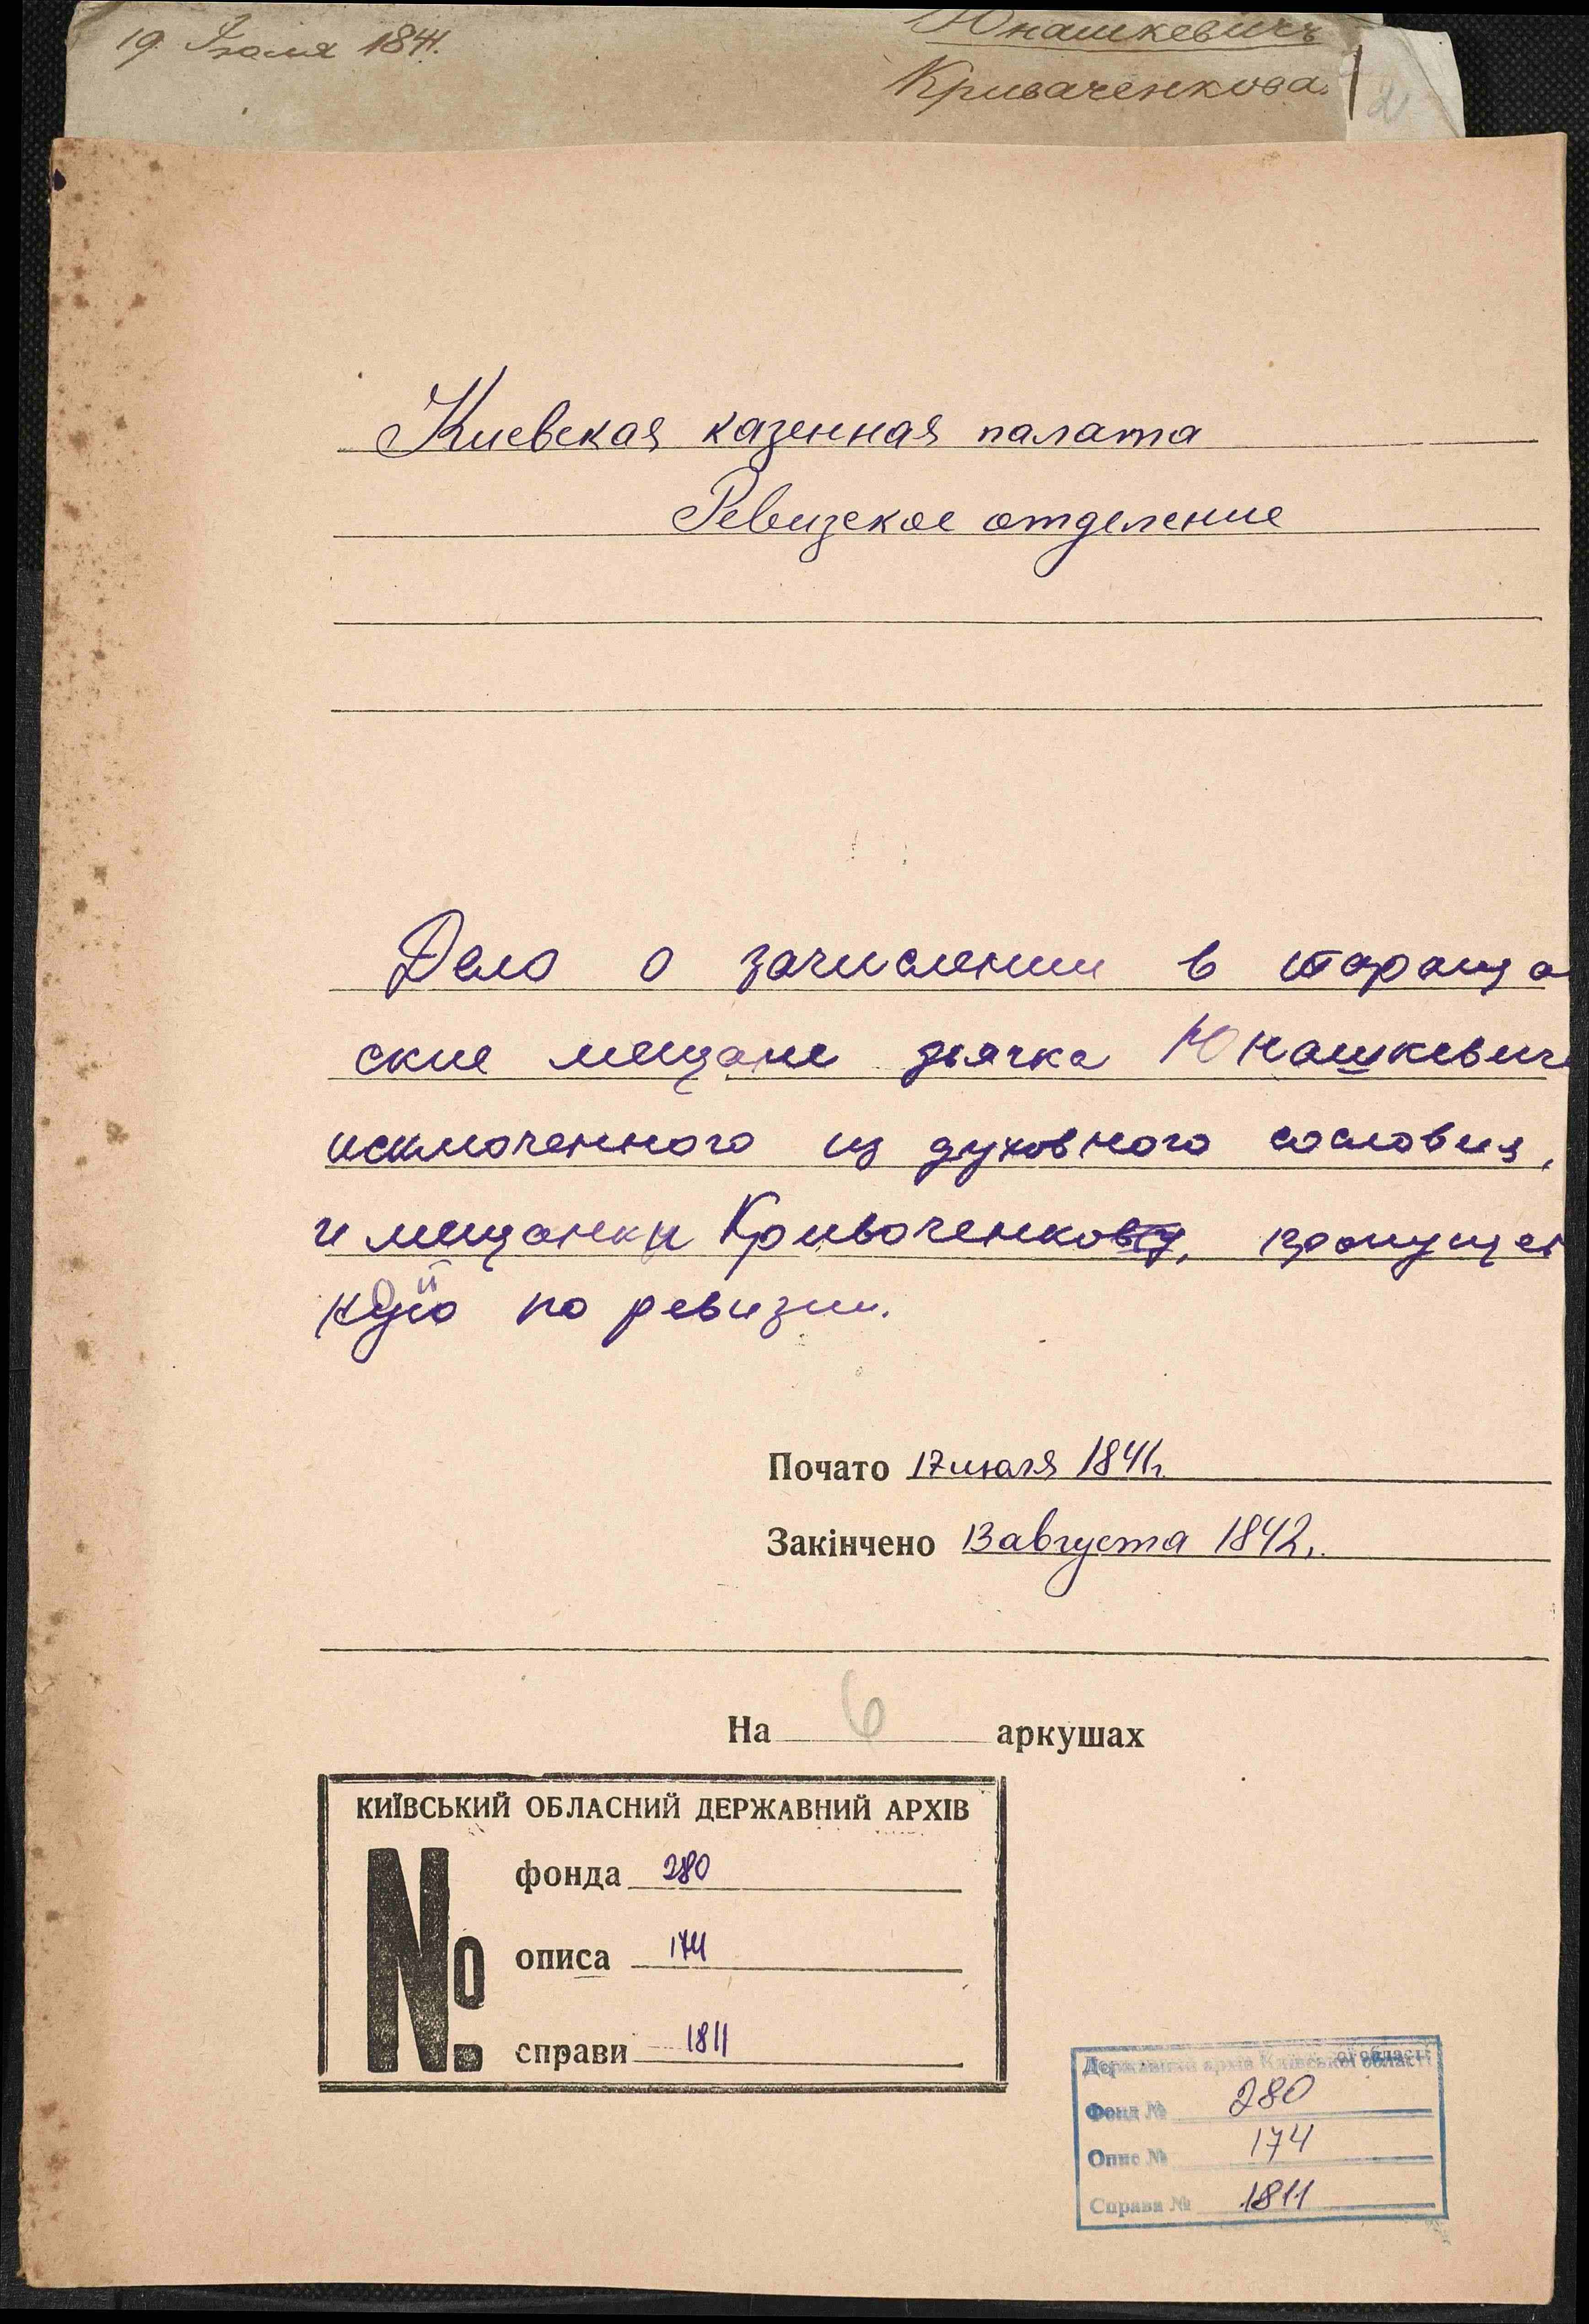 19 Іюля 1841.
Юнашкевичъ
Криваченкова.
2
Киевская казенная палата
Ревизское отделение
Дело о зачислении в тараща
ские мещане дьячка Юнашкевич
исключенного из духовного сословия,
и мещанки Кривоченков, пропущен
ной по ревизии.
Почато 17 июля 1841 г.
Закінчено 13 августа 1842 г.
На 6 аркушах
КИЇВСЬКИЙ ОБЛАСНИЙ ДЕРЖАВНИЙ АРХІВ
№ фонда 280
описа 174
справи 1811
Державний архів Київської області
Фонд № 280
Опис № 174
Справа № 1811